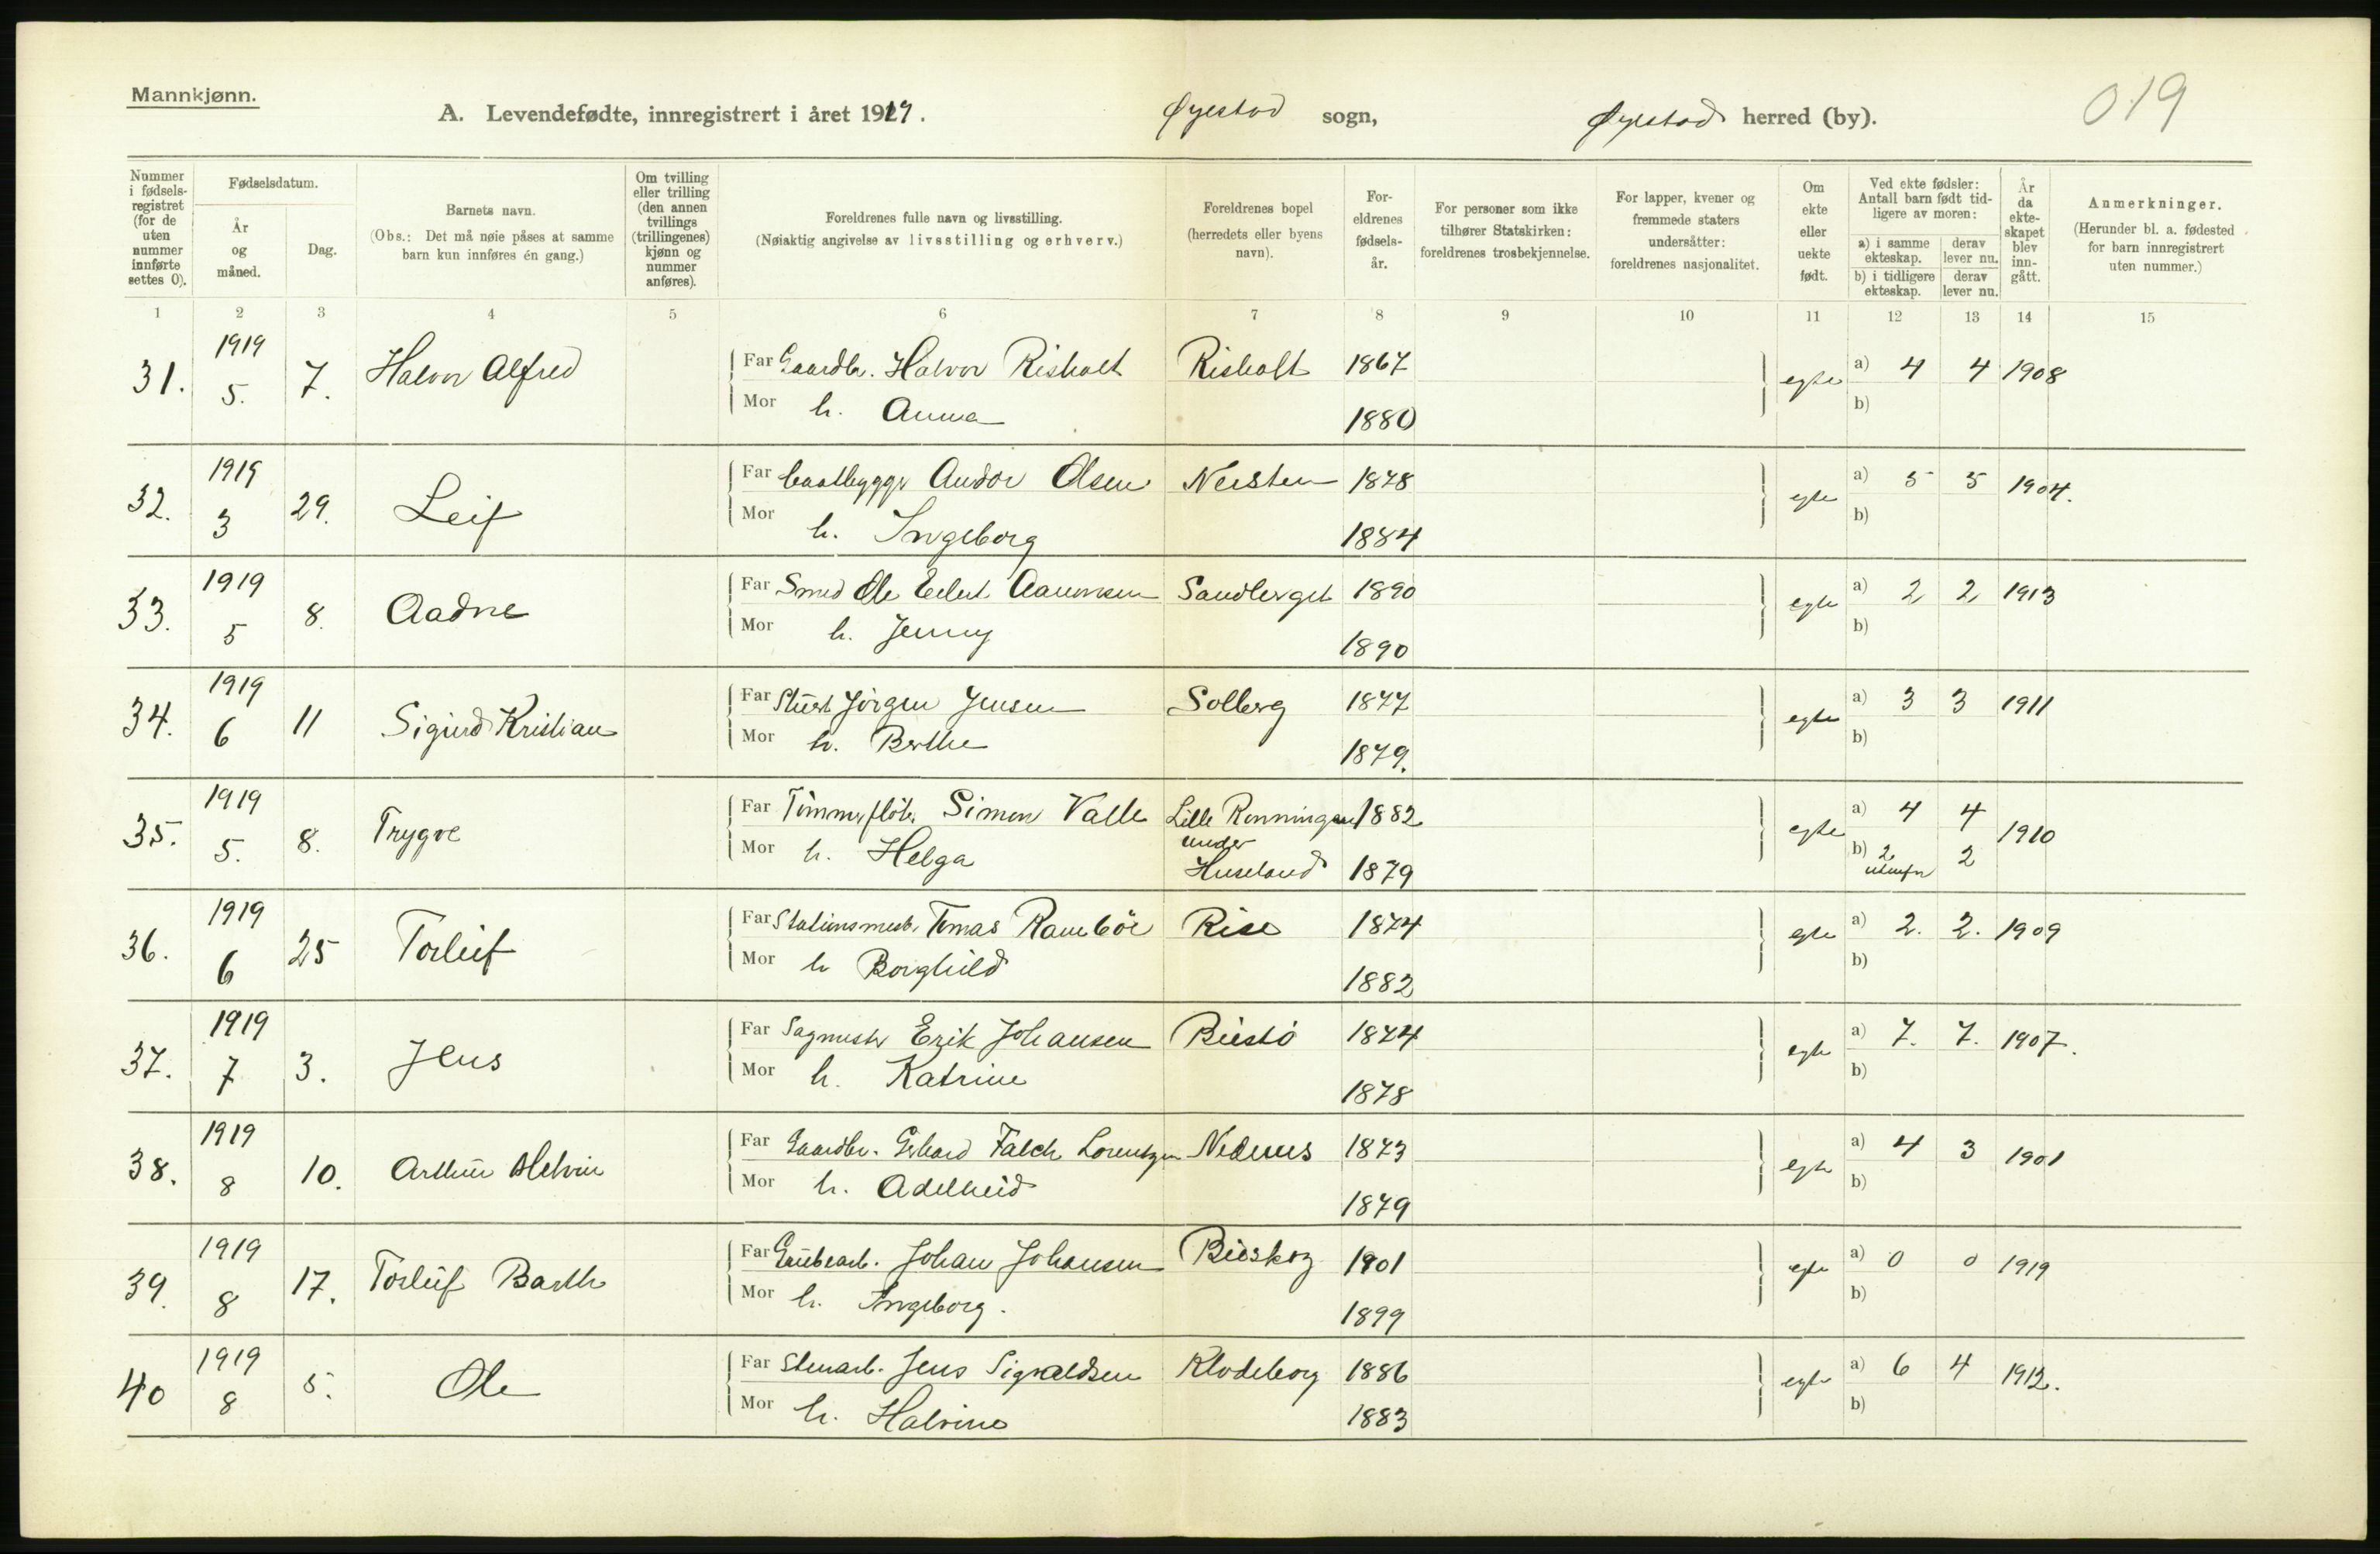 Mannkjønn.
A. Levendefødte, innregistrert i året 1919. Øyestad sogn, Øyestad herred (by). 019
Nummer i fødsels-registret (for de uten nummer innførte settes 0).
Fødselsdatum.
År og måned.
Dag.
Barnets navn.
(Obs.: Det må nøie påses at samme barn kun innføres én gang.)
Om tvilling eller trilling (den annen tvillings (trillingenes) kjønn og nummer anføres).
Foreldrenes fulle navn og livsstilling.
(Nøiaktig angivelse av livsstilling og erhverv.)
Foreldrenes bopel (herredets eller byens navn).
For-eldrenes fødsels-år.
For personer som ikke tilhører Statskirken: foreldrenes trosbekjennelse.
For lapper, kvener og fremmede staters undersåtter: foreldrenes nasjonalitet.
Om ekte eller uekte født.
Ved ekte fødsler: Antall barn født tid-ligere av moren:
a) i samme ekteskap. derav lever nu.
b) i tidligere ekteskap. derav lever nu.
År da ekte-skapet blev inn-gått.
Anmerkninger.
(Herunder bl. a. fødested for barn innregistrert uten nummer.)
1 2 3 4 5 6 7 8 9 10 11 12 13 14 15
31. 1919 5. 7. Halvor Alfred Far Gaardbr. Halvor Risholt Risholt 1867 egte a) 4 4 1908
Mor h. Anna 1880 b)
32. 1919 3 29. Leif Far baatbygger Andor Olsen Nersten 1878 egte a) 5 5 1904.
Mor h. Ingeborg 1884 b)
33. 1919 5 8. Aadne Far Smed Ole Eilert Aanonsen Sandberget 1890 egte a) 2 2 1913
Mor h. Jenny 1890 b)
34. 1919 6 11 Sigurd Kristian Far Jörgen Jensen Solberg 1877 egte a) 3 3 1911
Mor h. Berthe 1879. b)
35. 1919 5. 8. Trygve Far Tömmerflöter Simon Valle Lille Rönningen 1882 egte a) 4 4 1910
Mor h. Helga under Huseland 1879 b) 2 2
36. 1919 6 25 Torleif Far Stationsmest. Tomas Ramböe Rise 1874 egte a) 2. 2. 1909
Mor h Borghild 1882 b)
37. 1919 7 3. Jens Far Sagmester Erik Johansen 1874 egte a) 7. 7. 1907.
Mor h. Katrine 1878 b)
38. 1919 8 10. Arthur Melvin Far Gaardbr. Gerhard Falch Lorentzen Nedenes 1873 egte a) 4 3 1901
Mor h. Adelheid 1879 b)
39. 1919 8 17. Torleif Barth Far Grubearb. Johan Johansen 1901 egte a) 0 0 1919
Mor h. Ingeborg. 1899 b)
40 1919 8 5. Ole Far Stenarb. Jens Sigvaldsen Klodeborg 1886 egte a) 6 4 1912.
Mor h. Halvine 1883 b)